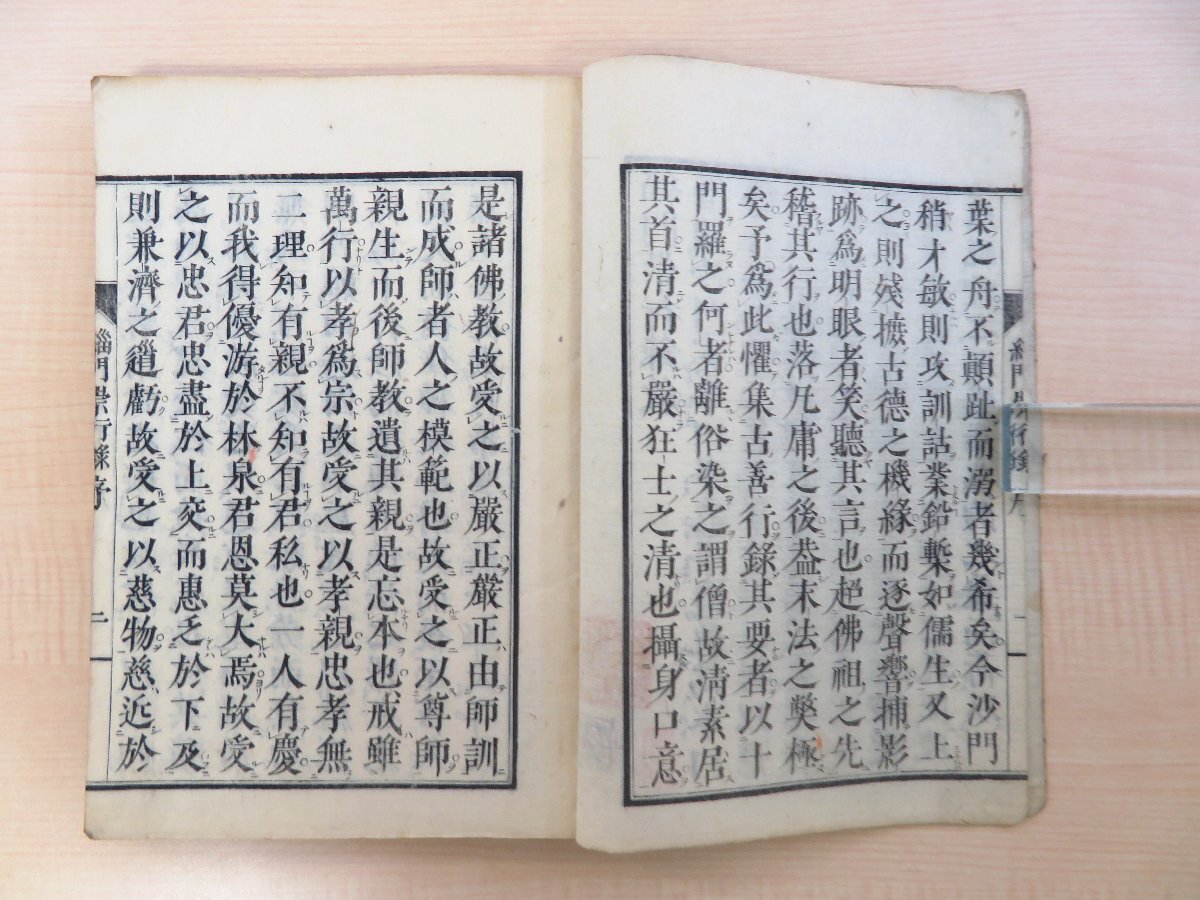 葉之舟不顛趾而溺者幾希矣今沙門
稍才敏則攻訓詁業鉛槧如儒生又上
之則殘摭古德之機緣而逐聲響捕影
跡爲明眼者笑聽其言也超佛祖之先
稽其行也落凡庸之後葢末法之獘極
矣予爲此懼集古善行錄其要者以十
門羅之何者離俗染之謂僧故淸素居
其首清而不嚴狂士之清也攝身口意
是諸佛教故受之以嚴正嚴正由師訓
而成師者人之模範也故受之以尊師
親生而後師教遺其親是忘本也戒雖
萬行以孝爲宗故受之以孝親忠孝無
二理知有親不知有君私也一人有慶
而我得優游於林泉君恩莫大焉故受
之以忠君忠盡於上交而惠乏於下及
則兼濟之道虧故受之以慈物慈近於
緇門崇行錄序
二